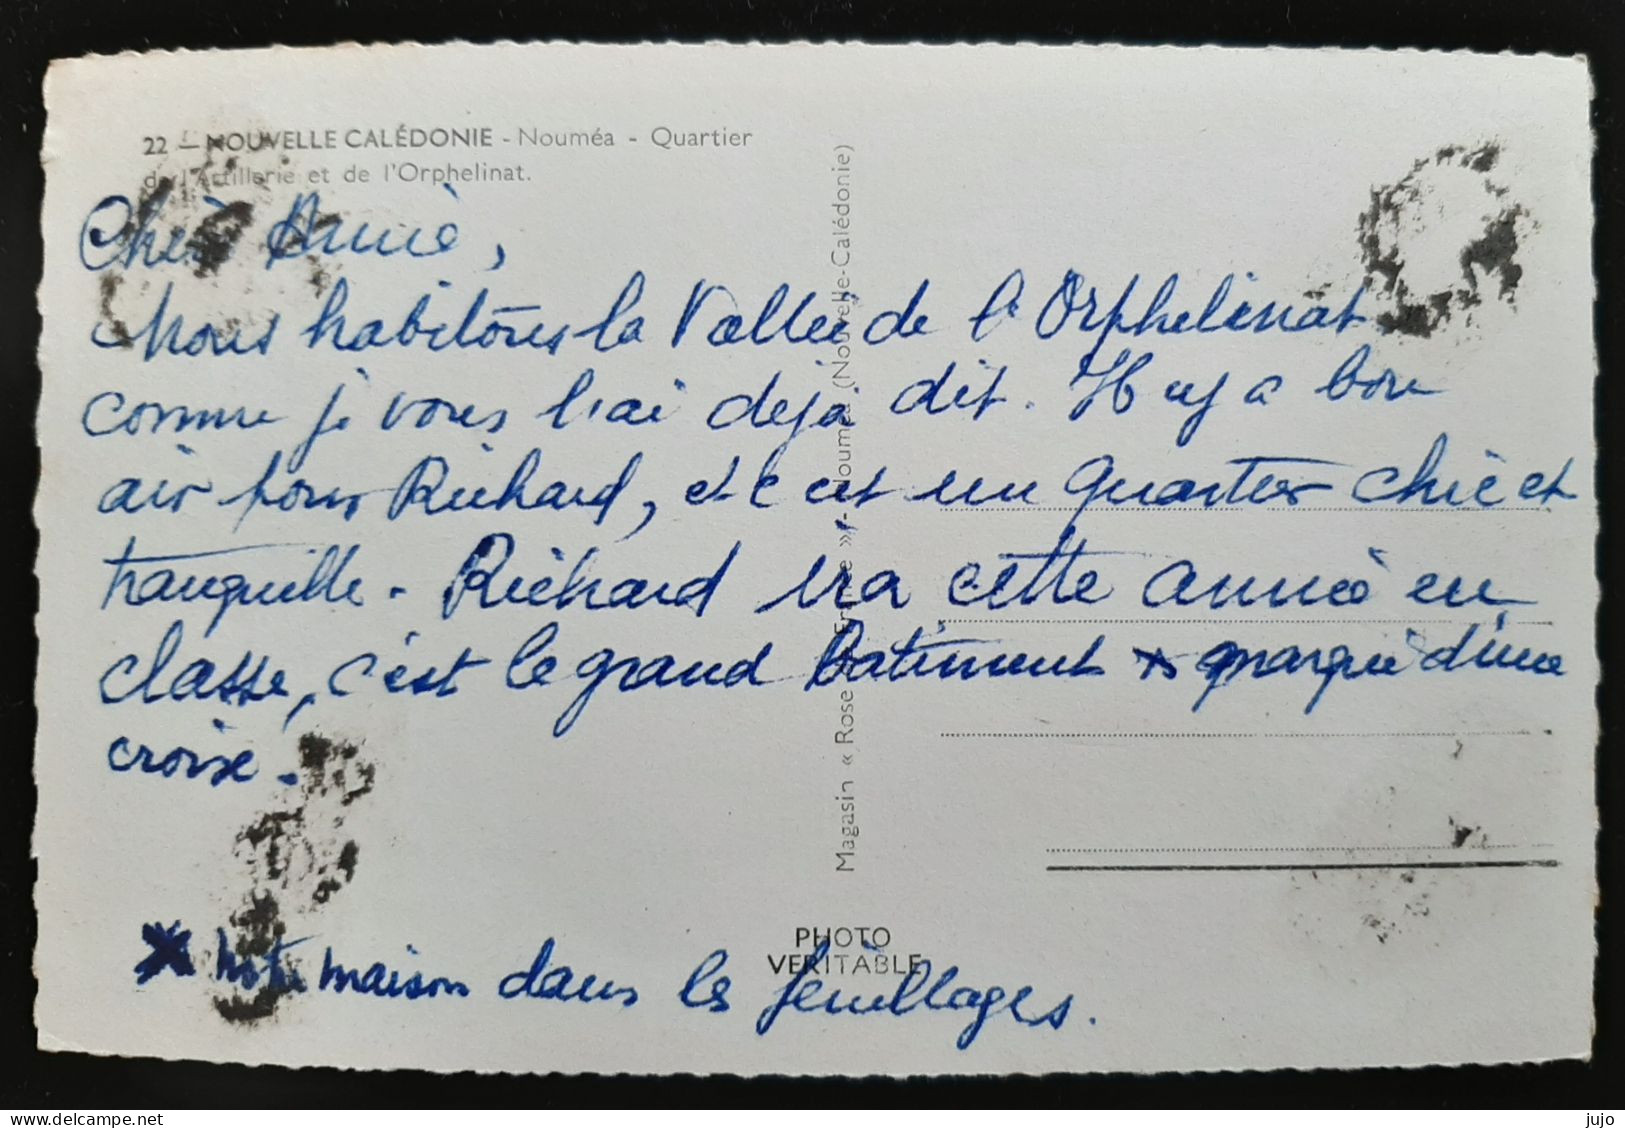 22 - NOUVELLE CALÉDONIE - Nouméa - Quartier
de l'Artillerie et de l'Orphelinat.
Chère Annie,
Nous habitons la Vallée de l'Orphelinat
comme je vous l'ai déjà dit. Il y a bon
air pour Richard, et c'est un quartier chic et
tranquille - Richard ira cette année en
classe, c'est le grand batiment x marqué d'une
croix -
x notre maison dans les feuillages.
Magasin « Rose » - Nouméa (Nouvelle-Calédonie)
PHOTO
VERITABLE
www.delcampe.net
jujo